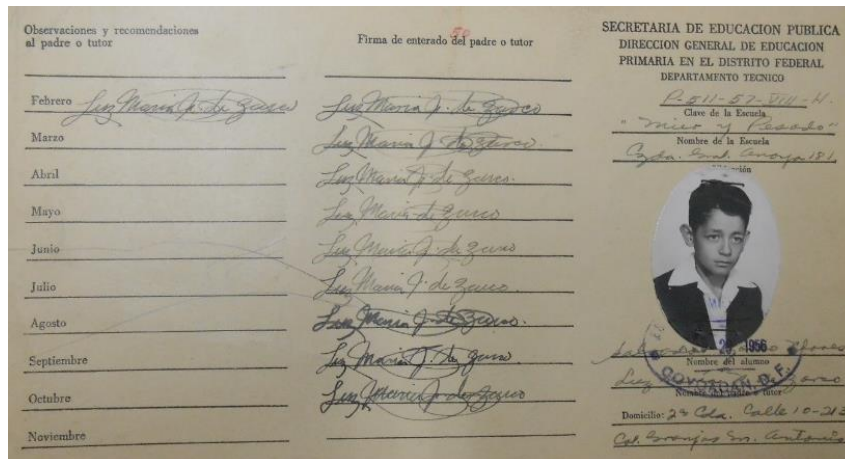 Observaciones y recomendaciones
al padre o tutor
Febrero Luz Maria J. de Zarco
Marzo
Abril
Mayo
Junio
Julio
Agosto
Septiembre
Octubre
Noviembre
50
Firma de enterado del padre o tutor
Luz Maria J. de Zarco
Luz Maria J. de Zarco.
Luz Maria J. de Zarco.
Luz Maria de Zarco
Luz Maria J. de Zarco
Luz Maria J. de Zarco
Luz Maria J. de Zarco.
Luz Maria J. de Zarco.
Luz Maria J. de Zarco
SECRETARIA DE EDUCACION PUBLICA
DIRECCION GENERAL DE EDUCACION
PRIMARIA EN EL DISTRITO FEDERAL
DEPARTAMENTO TECNICO
P-511-57-VIII-H.
Clave de la Escuela
"Mier y Pesado"
Nombre de la Escuela
Czda. Gral. Anaya 181.
1956
Nombre del alumno
COYOACAN, D.F.
Luz Zarco
Nombre del padre o tutor
Domicilio: 2a Cda. Calle 10-213
Col. Granjas Sn. Antonio